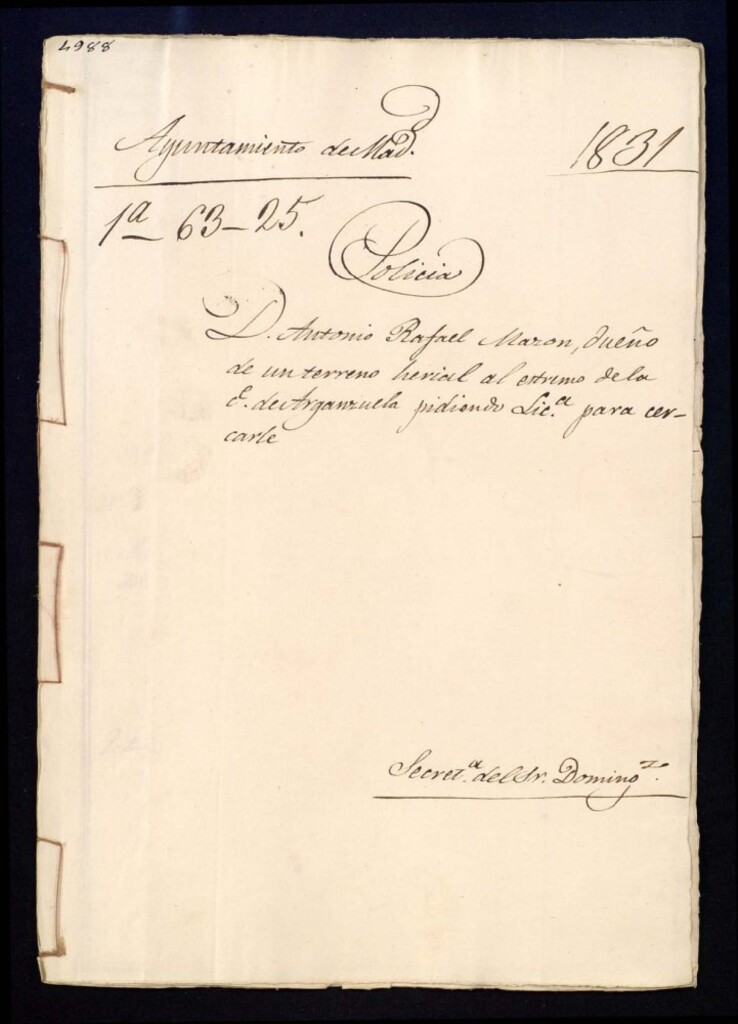 4988
Ayuntamiento de Mad.d
1831
1ª 63-25.
Policia
D. Antonio Rafael Mazon, dueño
de un terreno herial al estremo de la
C. de Arganzuela pidiendo Lic.ª para cer-
carle
Secret.ª del Sr. Doming.z